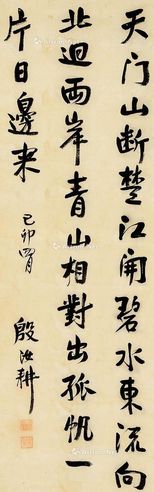 天门山断楚江開碧水東流向
北迴两岸青山相對出孤帆一
片日邊来
己卯夏
殷汝耕